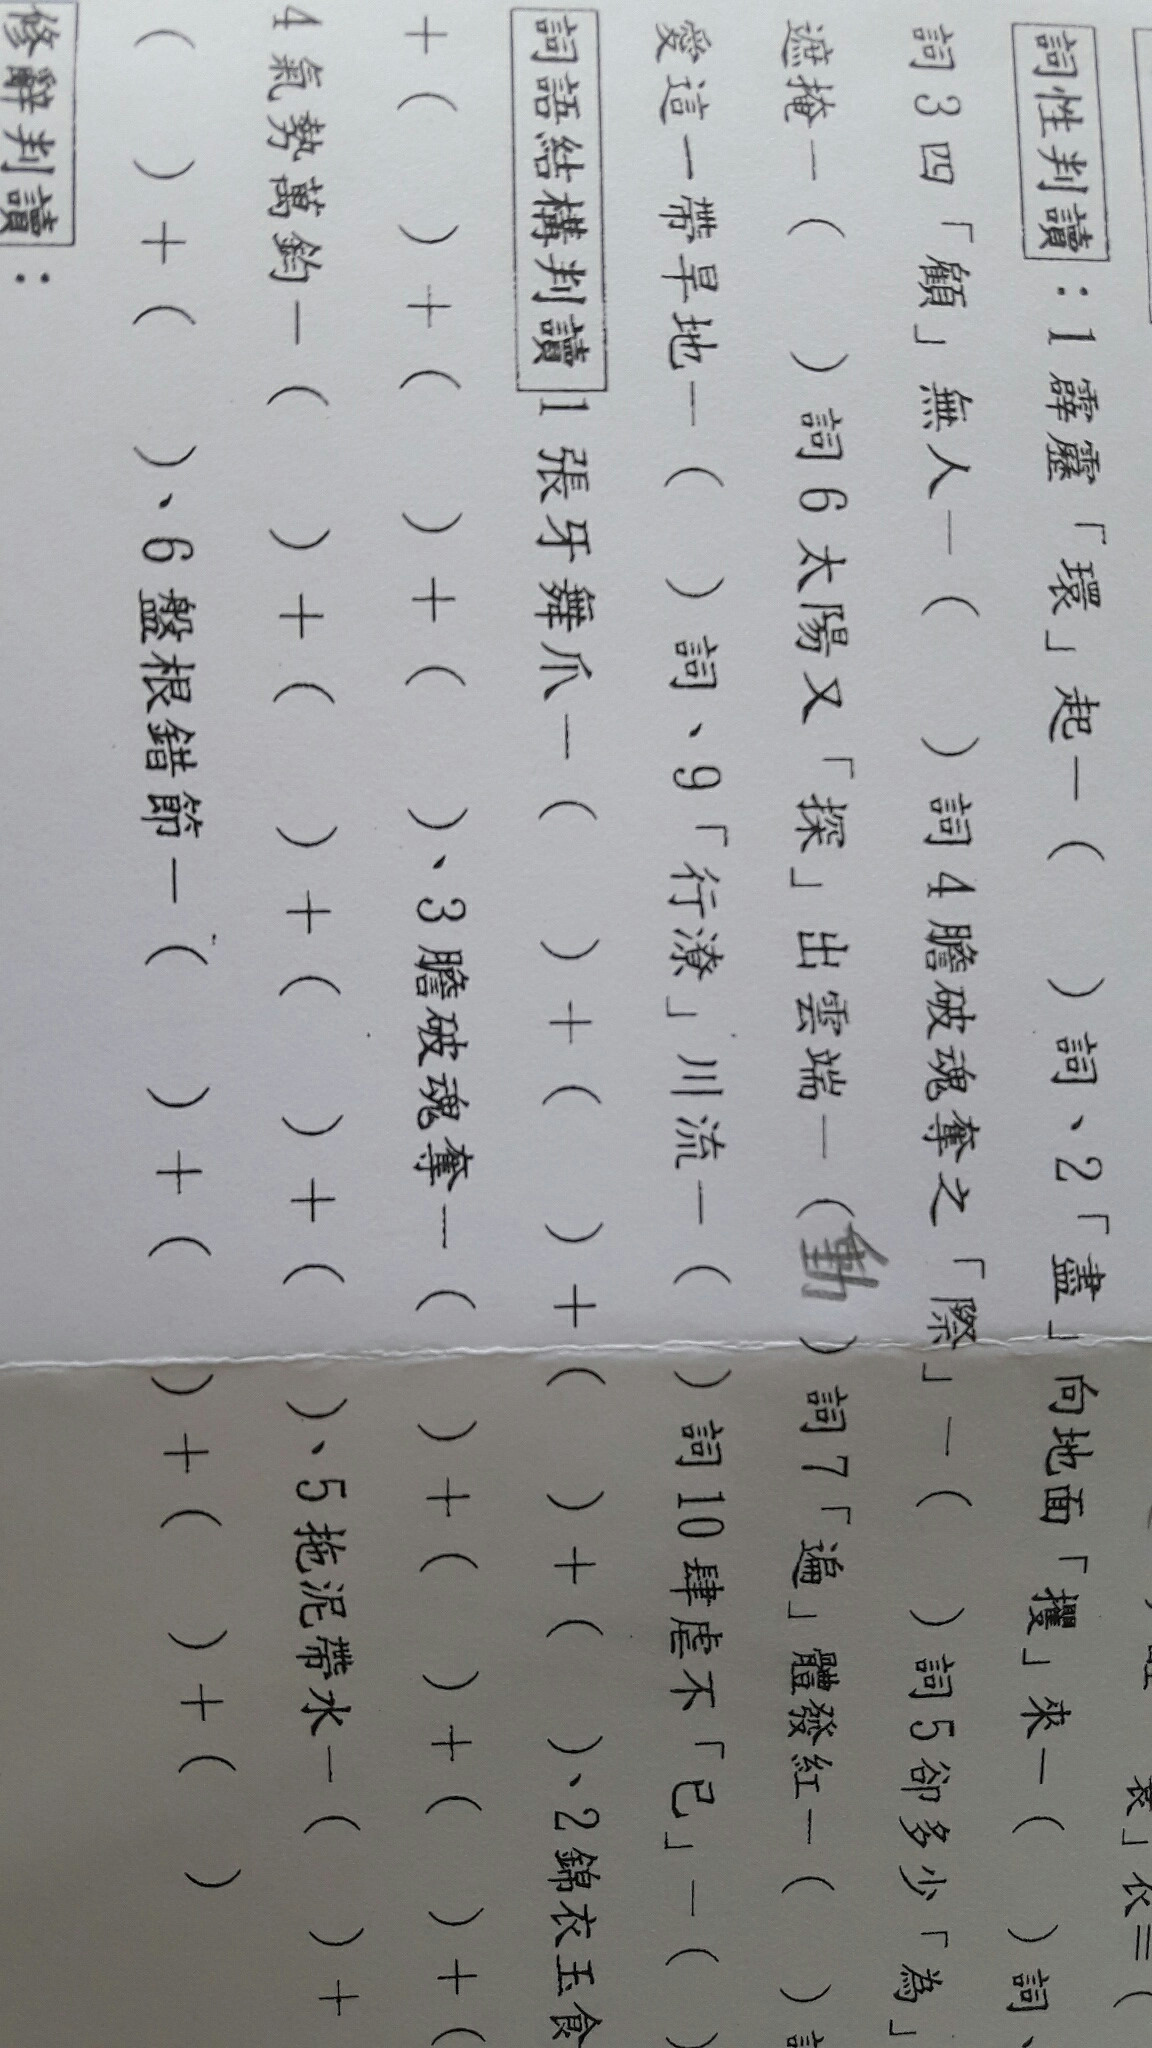 衰」伏=(
詞性判讀：1霹靂「環」起—(　)詞、2「盡」向地面「攫」來—(　)詞、
詞3四「顧」無人—(　)詞4膽破魂奪之「際」—(　)詞5卻多少「為」
遮掩—(　)詞6太陽又「探」出雲端—(動)詞7「遍」體發紅—(　)
愛這一帶旱地—(　)詞、9「行潦」川流—(　)詞10肆虐不「已」—(　)
詞語結構判讀1張牙舞爪—(　)+(　)+(　)+(　)、2錦衣玉食
+(　)+(　)+(　)、3膽破魂奪—(　)+(　)+(　)+(
4氣勢萬鈞—(　)+(　)+(　)+(　)、5拖泥帶水—(　)+
(　)+(　)、6盤根錯節—(　)+(　)+(　)+(　)
修辭判讀：